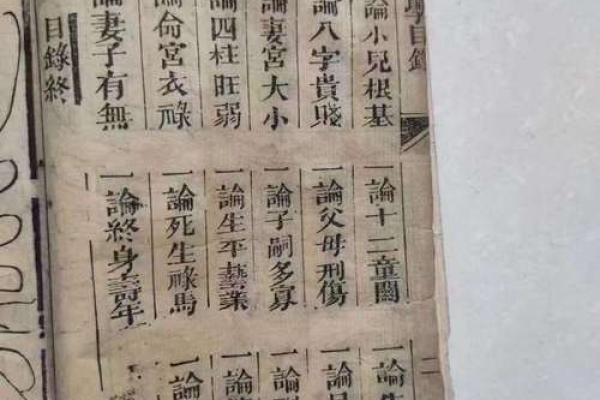 目錄
論小兒根基
論八字貴賤
論妻宮大小
論四柱旺弱
論命宮衣祿
論妻子有無
目錄終
一論十二童關
一論父母刑傷
一論子嗣多寡
一論生平藝業
一論死生祿馬
一論終身壽年
二
一論
一論
一論
一論
一論